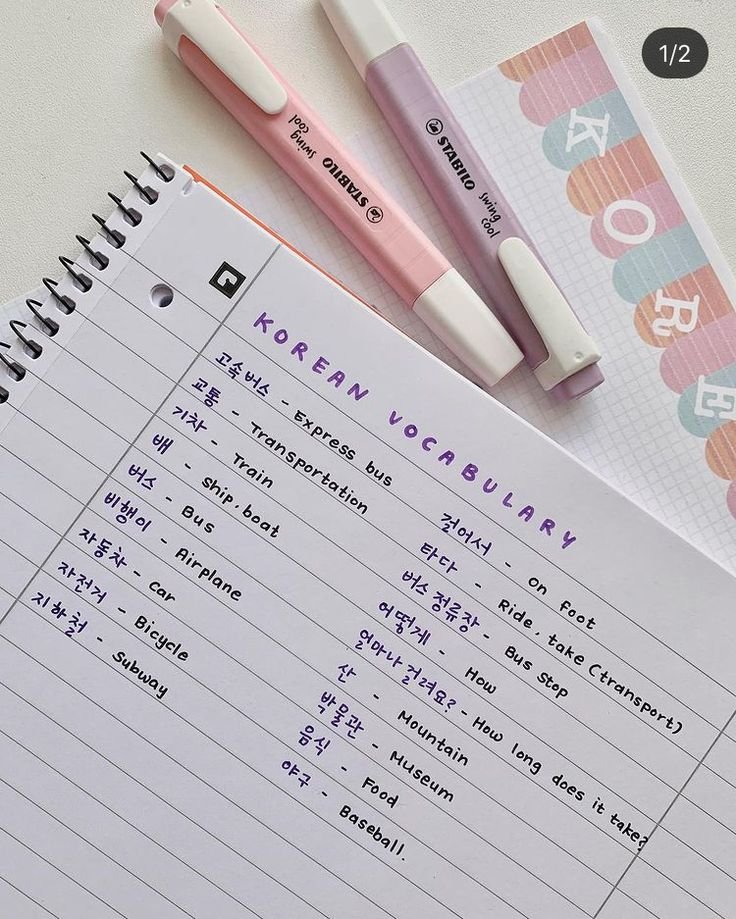 1/2
swing cool
STABILO
STABILO
swing cool
KORE
KOREAN VOCABULARY
고속버스 - Express bus
교통 - Transportation
기차 - Train
배 - Ship, boat
버스 - Bus
비행이 - Airplane
자동차 - car
자전거 - Bicycle
지하철 - Subway
걸어서 - on foot
타다 - Ride, take (transport)
버스 정류장 - Bus Stop
어떻게 - How
얼마나 걸려요? - How long does it take?
산 - Mountain
박물관 - Museum
음식 - Food
야구 - Baseball.